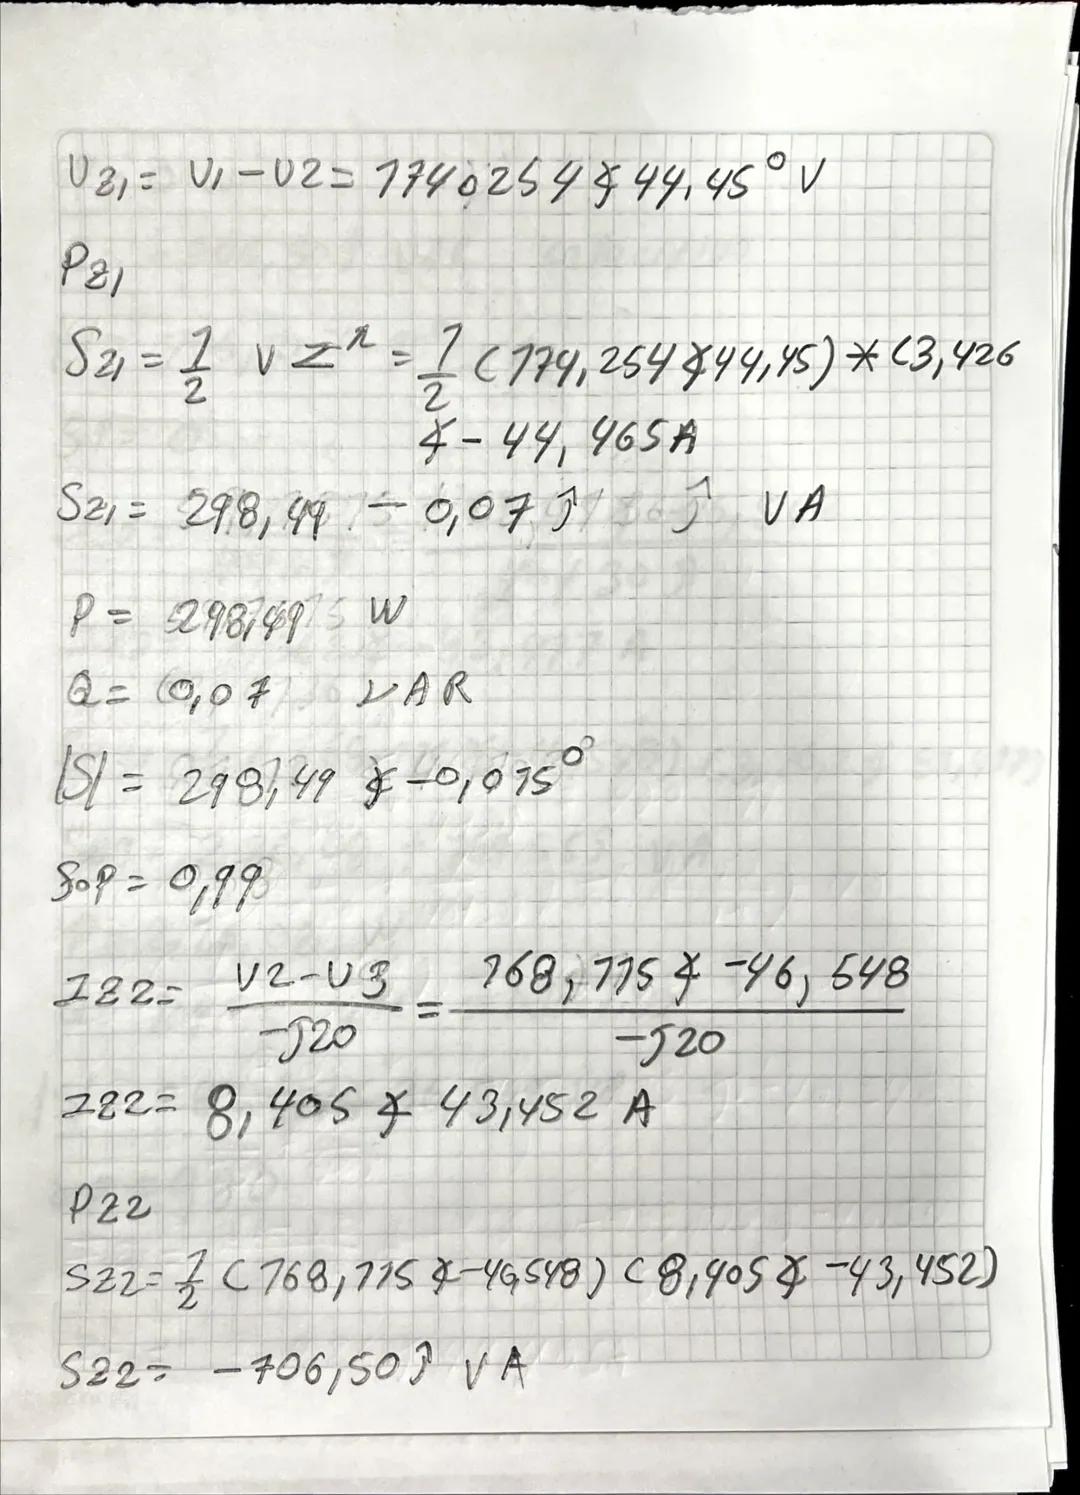 Uz1 = U1 - U2 = 1740254∡44,45° V
Pz1
Sz1 = 1/2 V I* = 1/2 (174,254∡44,45) * (3,426
∡-44,465A
Sz1 = 298,49 - 0,07 j j VA
P = 298,49 W
Q = 0,07 VAR
|S| = 298,49 ∡-0,015°
FoP = 0,99
IZ2 = U2-U3 / -j20 = 168,115∡-46,548 / -j20
IZ2 = 8,405∡43,452 A
PZ2
SZ2 = 1/2 (168,115∡-46,548) (8,405∡-43,452)
SZ2 = -706,50j VA